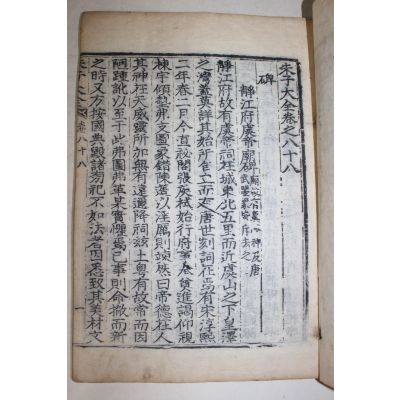 朱子大全卷之八十八
碑
靜江府虞帝廟碑
靜江府故有虞帝祠在城東北五里而近虞山之下皇澤
之灣蓋莫詳其始所自立而有唐世刻詞在焉有宋淳熙
二年春二月今直祕閣張侯栻始行府事奉奠進謁仰視
棟宇傾墊弗支圖象錯陳簉以淫厲則竦然曰帝德在人
其神在天威靈所加無有遠邇降祠茲土粤有故常而因
陋踵訛以至于此弗圖弗革某實懼焉已事則命撤而新
之時又方按國典毀諸淫祀不如法者因悉致其美材文
朱子大全 卷八十八
一